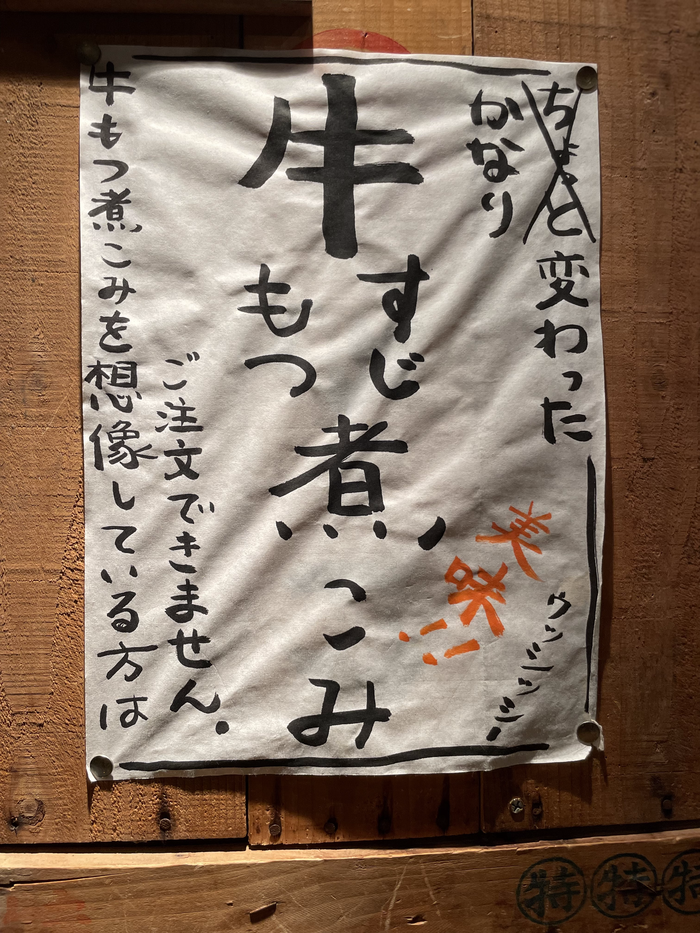 ちょっと変わった
かなり
牛
すじ
もつ
煮こみ
美味!!
牛もつ煮こみを想像している方は
ご注文できません。
特特特